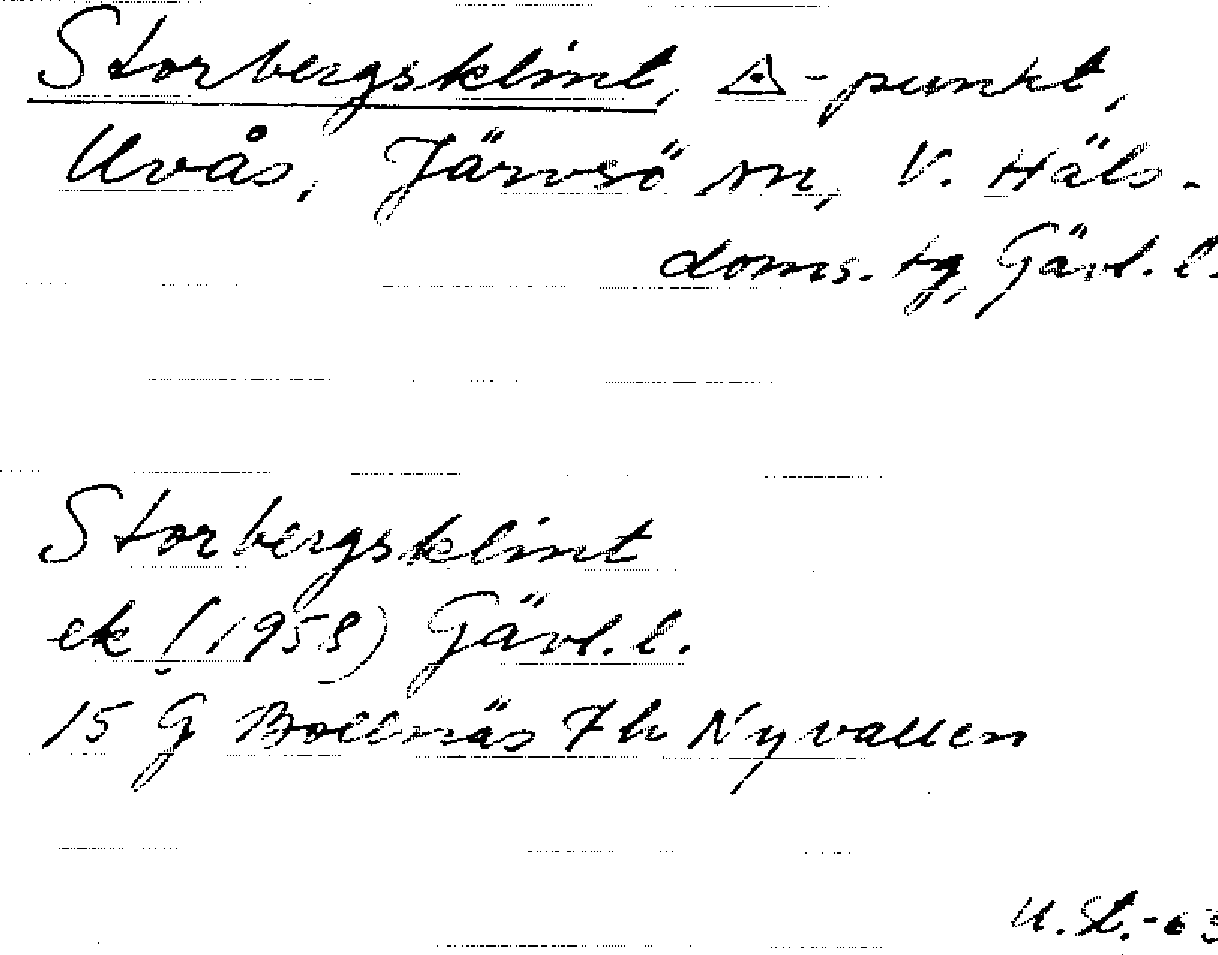 Storbergsklint, △-punkt,
Uvås, Järvsö sn, V. Häls.
doms. tg, Gävl. l.
Storbergsklint
ek (1958) Gävl. l.
15 G Bollnäs 7 h Nyvallen
U. St. -63